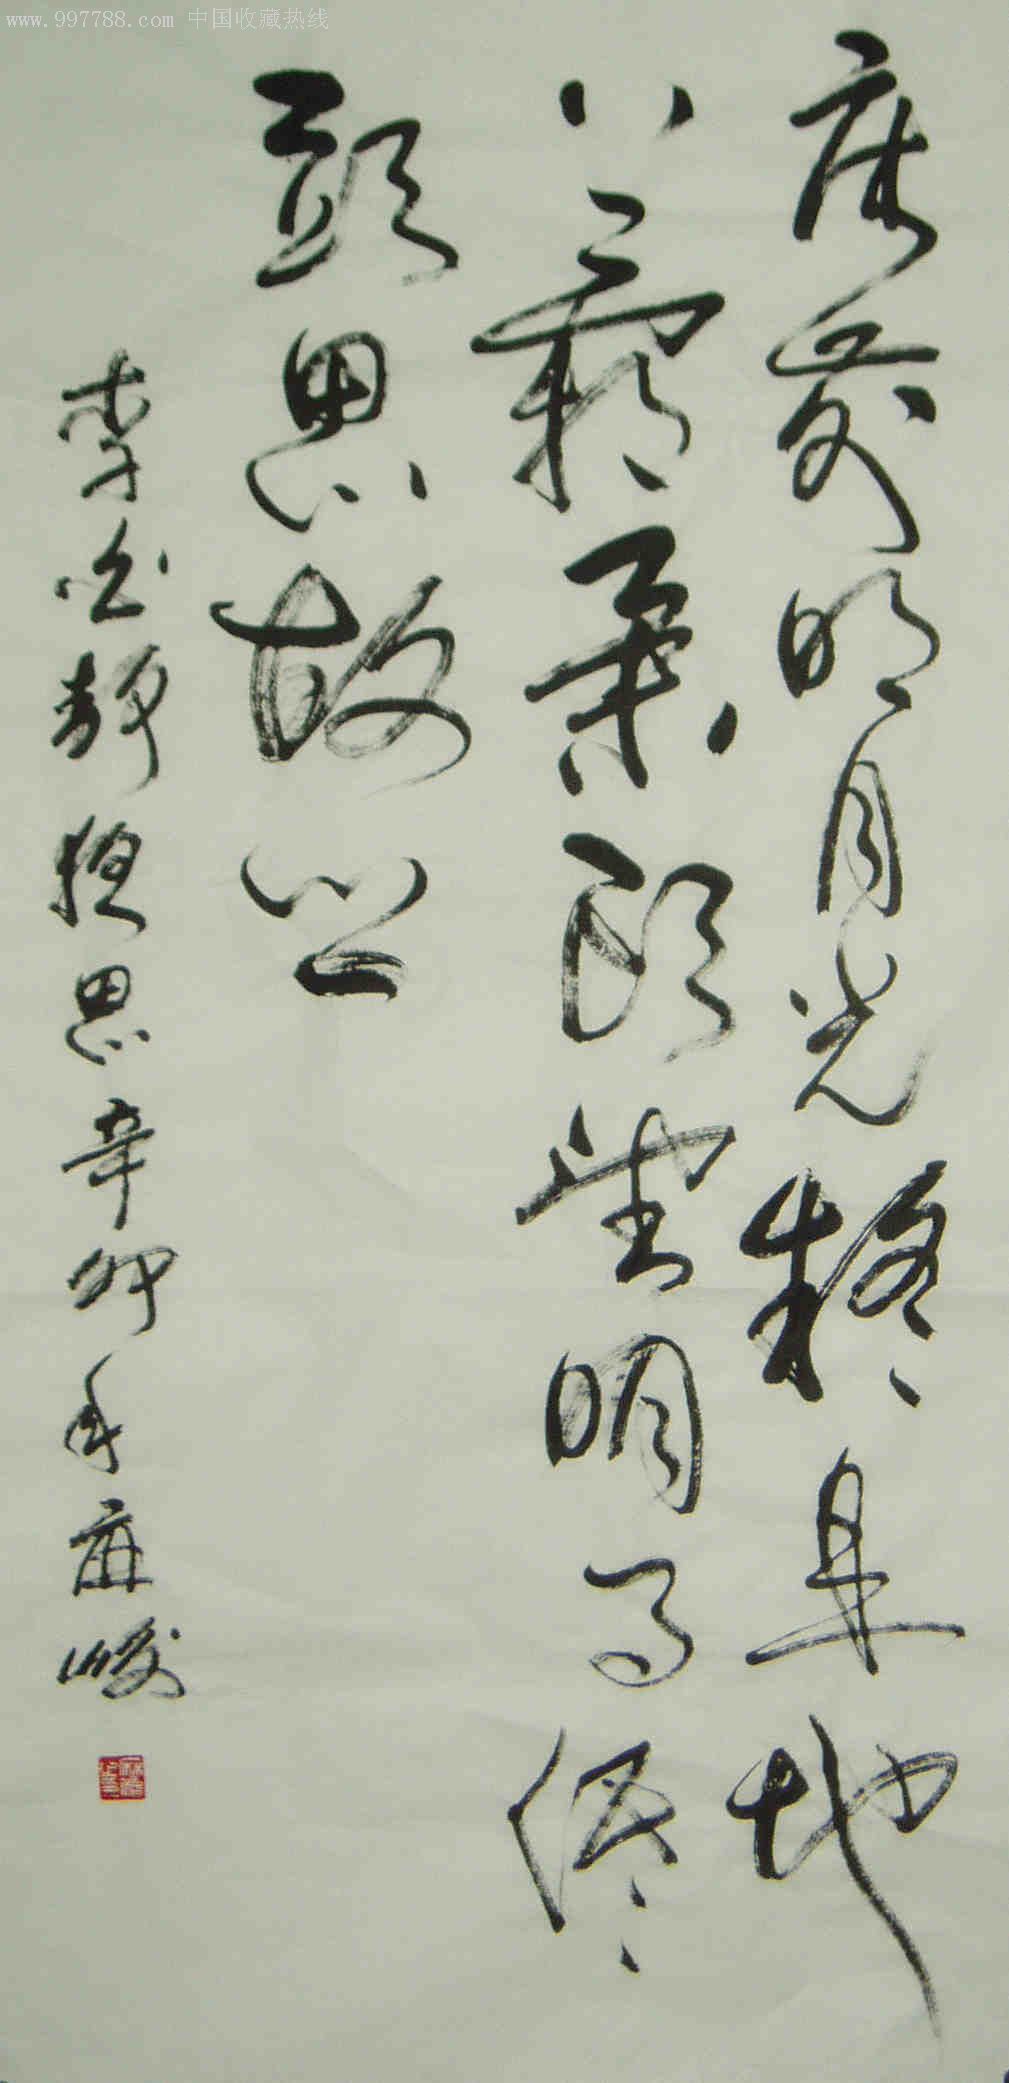 www.997788.com 中国收藏热线
床前明月光疑是地
上霜舉頭望明月低
頭思故鄉
李白靜夜思辛卯年麻峻